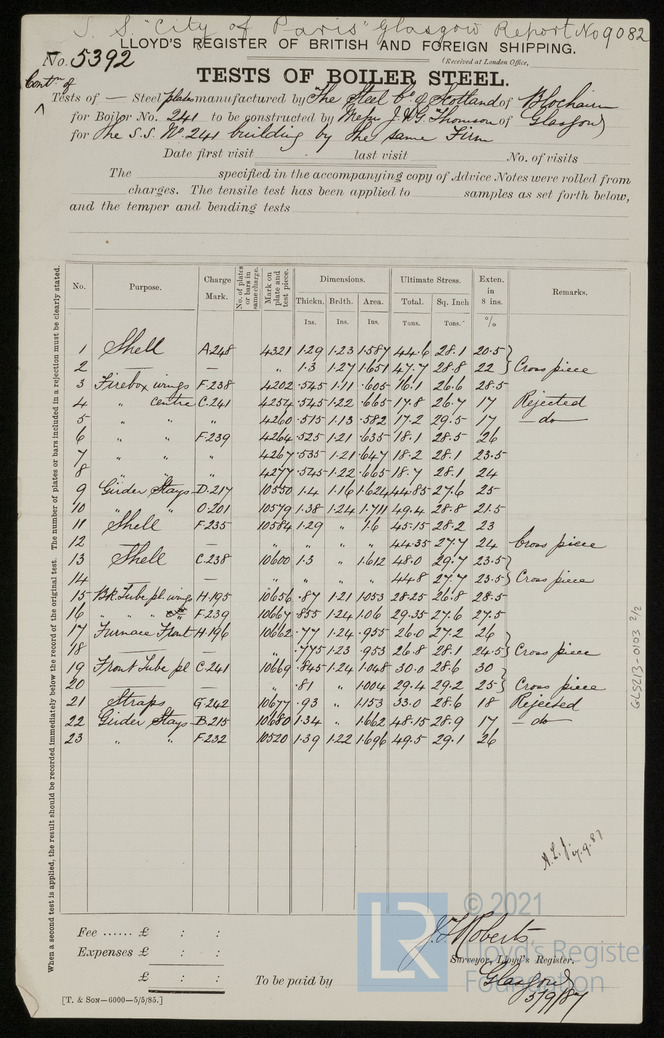 S. S "City of Paris" Glasgow Report No 9082
LLOYD'S REGISTER OF BRITISH AND FOREIGN SHIPPING.
No. 5392
(Received at London Office,
TESTS OF BOILER STEEL.
Contn of
Tests of — Steel plates manufactured by The Steel Co of Scotland of Blochairn
for Boiler No. 241 to be constructed by Messrs J. & G. Thomson of Glasgow
for The S.S. No. 241 building by the same Firm
Date first visit - last visit No. of visits
The specified in the accompanying copy of Advice Notes were rolled from
charges. The tensile test has been applied to samples as set forth below,
and the temper and bending tests
No. Purpose. Charge Mark. No. of plates or bars in same charge. Mark on plate and test piece. Dimensions. Ultimate Stress. Exten. in 8 ins. Remarks.
Thickn. Brdth. Area. Total. Sq. Inch
Ins. Ins. Ins. Tons. Tons. %
1 Shell A248 4321 1.29 1.23 1.587 44.6 28.1 20.5
2 — — " 1.3 1.27 1.651 47.7 28.8 22 } Cross piece
3 Firebox wings F.238 4202 .545 1.11 .605 16.1 26.6 28.5
4 " centre C.241 4254 .545 1.22 .665 17.8 26.7 17 Rejected
5 " " " 4260 .515 1.13 .582 17.2 29.5 17 — do —
6 " " F.239 4264 .525 1.21 .635 18.1 28.5 26
7 " " " 4267 .535 1.21 .647 18.2 28.1 23.5
8 " " " 4277 .545 1.22 .665 18.7 28.1 24
9 Girder Stays D.217 10550 1.4 1.16 1.624 44.85 27.6 25
10 " " O.201 10579 1.38 1.24 1.711 49.4 28.8 21.5
11 Shell F.235 10584 1.29 " 1.6 45.15 28.2 23
12 — — " " " " 44.35 27.7 24 Cross piece
13 Shell C.238 10600 1.3 " 1.612 48.0 29.7 23.5
14 — — " " " " 44.8 27.7 23.5 } Cross piece
15 Bk Tube pl. wings H.195 10656 .87 1.21 1.053 28.25 26.8 28.5
16 " " " F.239 10667 .855 1.24 1.06 29.35 27.6 27.5
17 Furnace Front H.196 10662 .77 1.24 .955 26.0 27.2 26
18 — — " .775 1.23 .953 26.8 28.1 24.5 } Cross piece
19 Front Tube pl C.241 10669 .845 1.24 1.048 30.0 28.6 30
20 — — " .81 " 1.004 29.4 29.2 25 } Cross piece
21 Straps G.242 10677 .93 " 1.153 33.0 28.6 18 Rejected
22 Girder Stays B.215 10680 1.34 " 1.662 48.15 28.9 17 — do —
23 " " F.232 10520 1.39 1.22 1.696 49.5 29.1 26
When a second test is applied, the result should be recorded immediately below the record of the original test. The number of plates or bars included in a rejection must be clearly stated.
GLS213-0103 2/2
A.L.J. 17.9.87
Fee ...... £ : :
Expenses £ : :
£ : :
To be paid by
J. T. Roberts
Surveyor, Lloyd's Register.
Glasgow
5/9/87
[T. & SON—6000—5/5/85.]
LR
© 2021
Lloyd's Register
Foundation